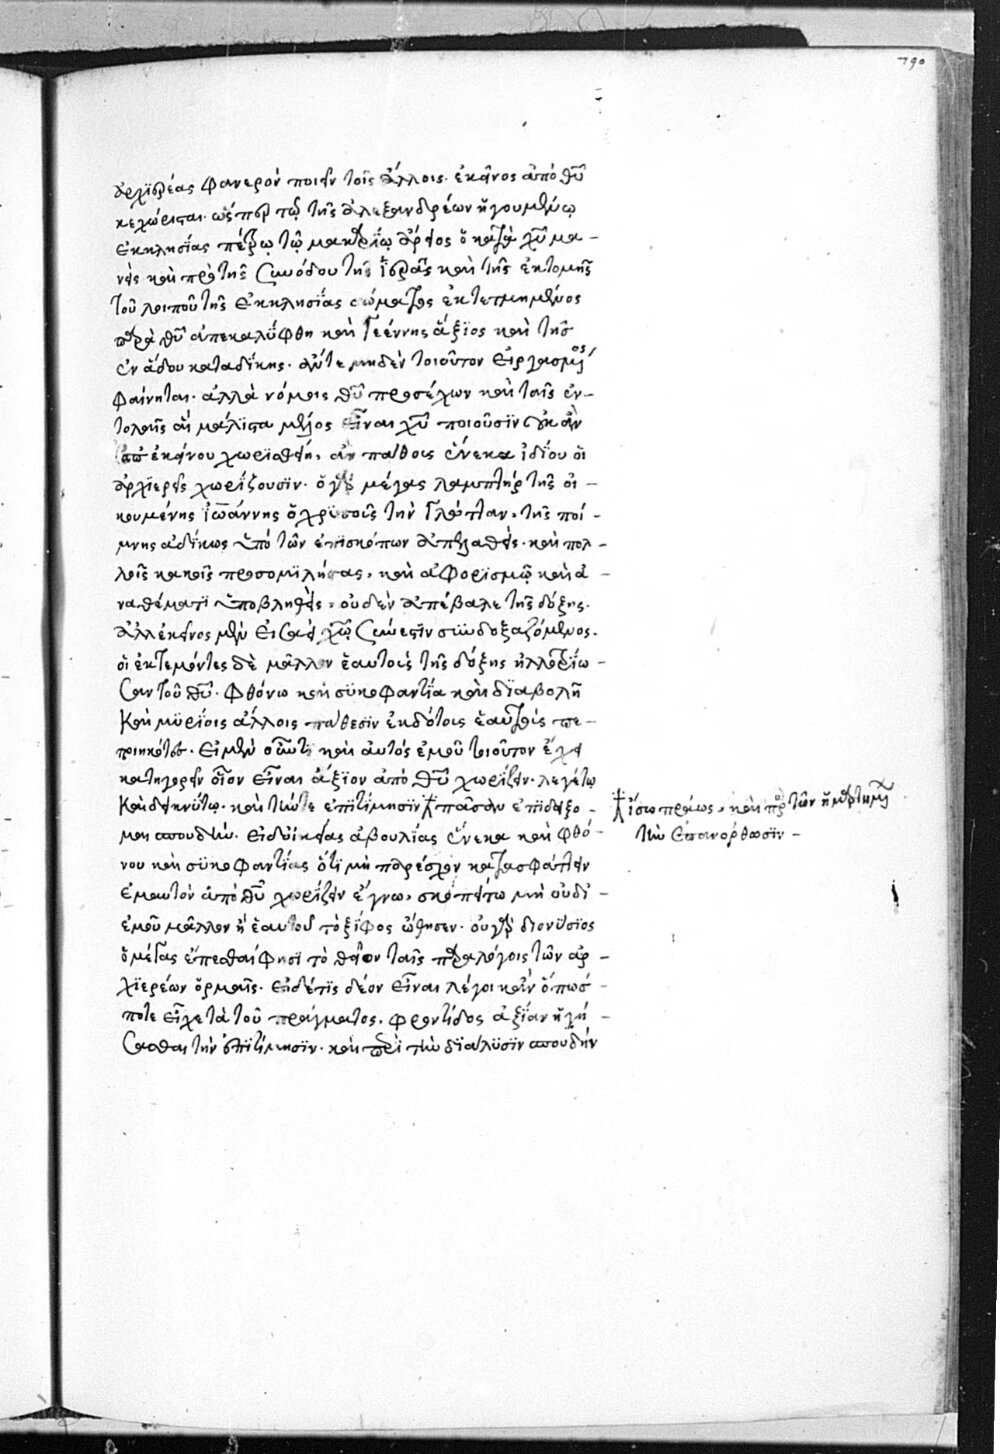 790
ἀρχιερέας φανερὸν ποιεῖν τοῖς ἄλλοις· ἐκεῖνος ἀπὸ θῦ
κεχώρισται· ὥσπερ τῷ τῆς ἀλεξανδρέων ἡγουμένῳ
ἐκκλησίας πέτρῳ τῷ μακαρίῳ ἄρειος ὁ κατὰ χῦ μα –
νεὶς καὶ πρὸ τῆς συνόδου τῆς ἱερᾶς καὶ τῆς ἐκτομῆς
τοῦ λοιποῦ τῆς ἐκκλησίας σώματος ἐκτετμημένος
παρὰ θῦ ἀπεκαλύφθη καὶ γεέννης ἄξιος καὶ τῆς
ἐν ἅδου καταδίκης· ἄν τε μηδὲν τοιοῦτον εἰργασμένος
φαίνηται· ἀλλὰ νόμοις θῦ προσέχων καὶ ταῖς ἐν –
τολαῖς αἳ μάλιστα μέλος εἶναι χῦ ποιοῦσιν οὐκ ἂν
ἀπ ἐκείνου χωρισθείη, ἂν πάθους ἕνεκα ἰδίου οἱ
ἀρχιερεῖς χωρίζουσιν· ὁ γὰρ μέγας λαμπτὴρ τῆς οἰ –
κουμένης ἰωάννης ὁ χρυσοῦς τὴν γλῶτταν, τῆς ποί –
μνης ἀδίκως ὑπὸ τῶν ἐπισκόπων ἀπελαθείς· καὶ πολ –
λοῖς κακοῖς προσομιλήσας, καὶ ἀφορισμῷ καὶ ἀ –
ναθέματι ὑποβληθείς, οὐδὲν ἀπέβαλε τῆς δόξης·
ἀλλ ἐκεῖνος μὲν εἰσαεὶ χῷ σύνεστιν συνδοξαζόμενος·
οἱ ἐκτεμόντες δὲ μᾶλλον ἑαυτοὺς τῆς δόξης ἠλλοτρίω –
σαν τοῦ θῦ· φθόνω καὶ συκοφαντία καὶ διαβολῆ
καὶ μυρίοις ἄλλοις πάθεσιν ἐκδότους ἑαυτοὺς πε –
ποιηκότες· εἰ μὲν οὖν τι καὶ αὐτὸς ἐμοῦ τοιοῦτον ἔχει
κατηγορεῖν οἷον εἶναι ἄξιον ἀπὸ θῦ χωρίζειν· λεγέτω
καὶ δεικνύτω· καὶ τήν τε ἐπιτίμησιν πᾶσαν ἐπιδείξο –
μαι σπουδήν· εἰ δ οἰκείας ἀβουλίας ἕνεκα καὶ φθό –
νου καὶ συκοφαντίας ὅτι μὴ παρέσχον κατασφάττειν
ἐμαυτὸν ἀπὸ θῦ χωρίζειν ἔγνω, σκοπείτω μὴ οὐδ
ἐμοῦ μᾶλλον ἢ ἑαυτοῦ τὸ ξίφος ὤθησεν· οὐ γὰρ διονύσιος
ὁ μέγας ἕπεσθαί φησι τὸ θεῖον ταῖς παραλόγοις τῶν ἀρ –
χιερέων ὁρμαῖς· εἰ δέ τις δέον εἶναι λέγοι κἂν ὅπως –
ποτε εἶχε τὰ τοῦ πράγματος, φροντίδος ἀξίαν ἡγή –
σασθαι τὴν ἐπιτίμησιν· καὶ περὶ τὴν διάλυσιν σπουδὴν
οἴσω πράως, καὶ πρὸς τῶν ἡμαρτημένων
τὴν ἐπανόρθωσιν –